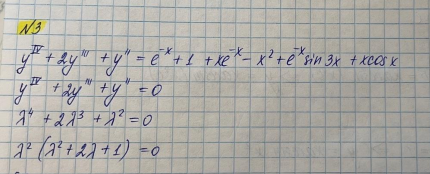 №3
y^IV + 2y''' + y'' = e^-x + 1 + xe^-x - x² + e^-x sin3x + xcosx
y^IV + 2y''' + y'' = 0
λ⁴ + 2λ³ + λ² = 0
λ² (λ² + 2λ + 1) = 0